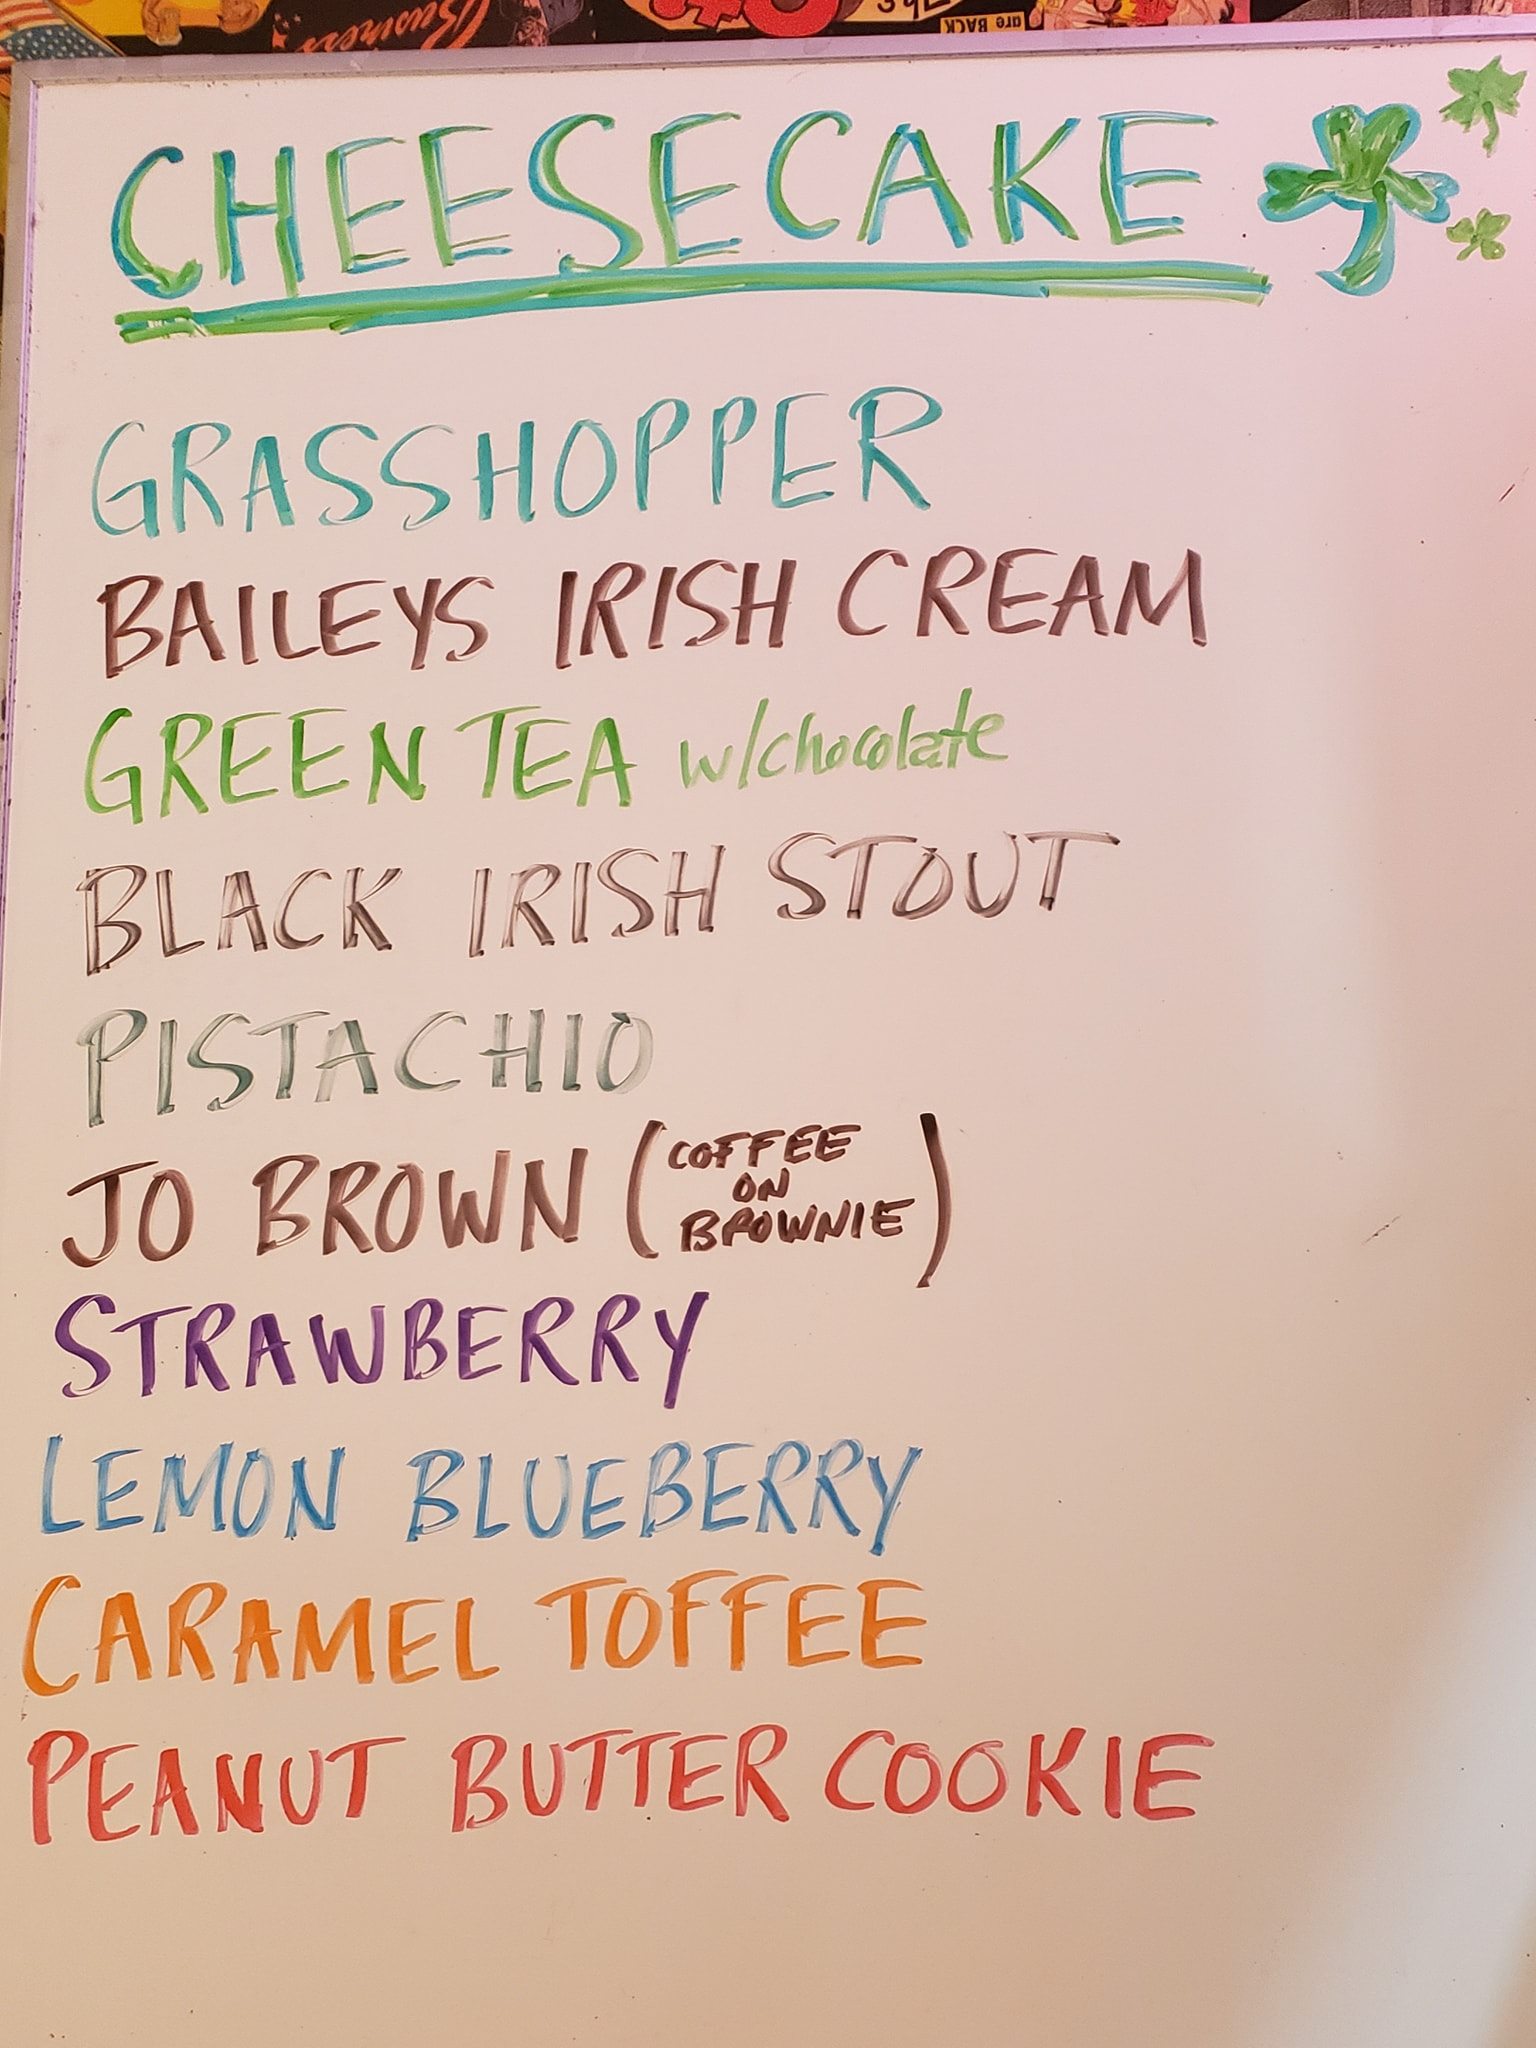 CHEESECAKE
GRASSHOPPER
BAILEYS IRISH CREAM
GREEN TEA w/chocolate
BLACK IRISH STOUT
PISTACHIO
JO BROWN (COFFEE
ON
BROWNIE)
STRAWBERRY
LEMON BLUEBERRY
CARAMEL TOFFEE
PEANUT BUTTER COOKIE